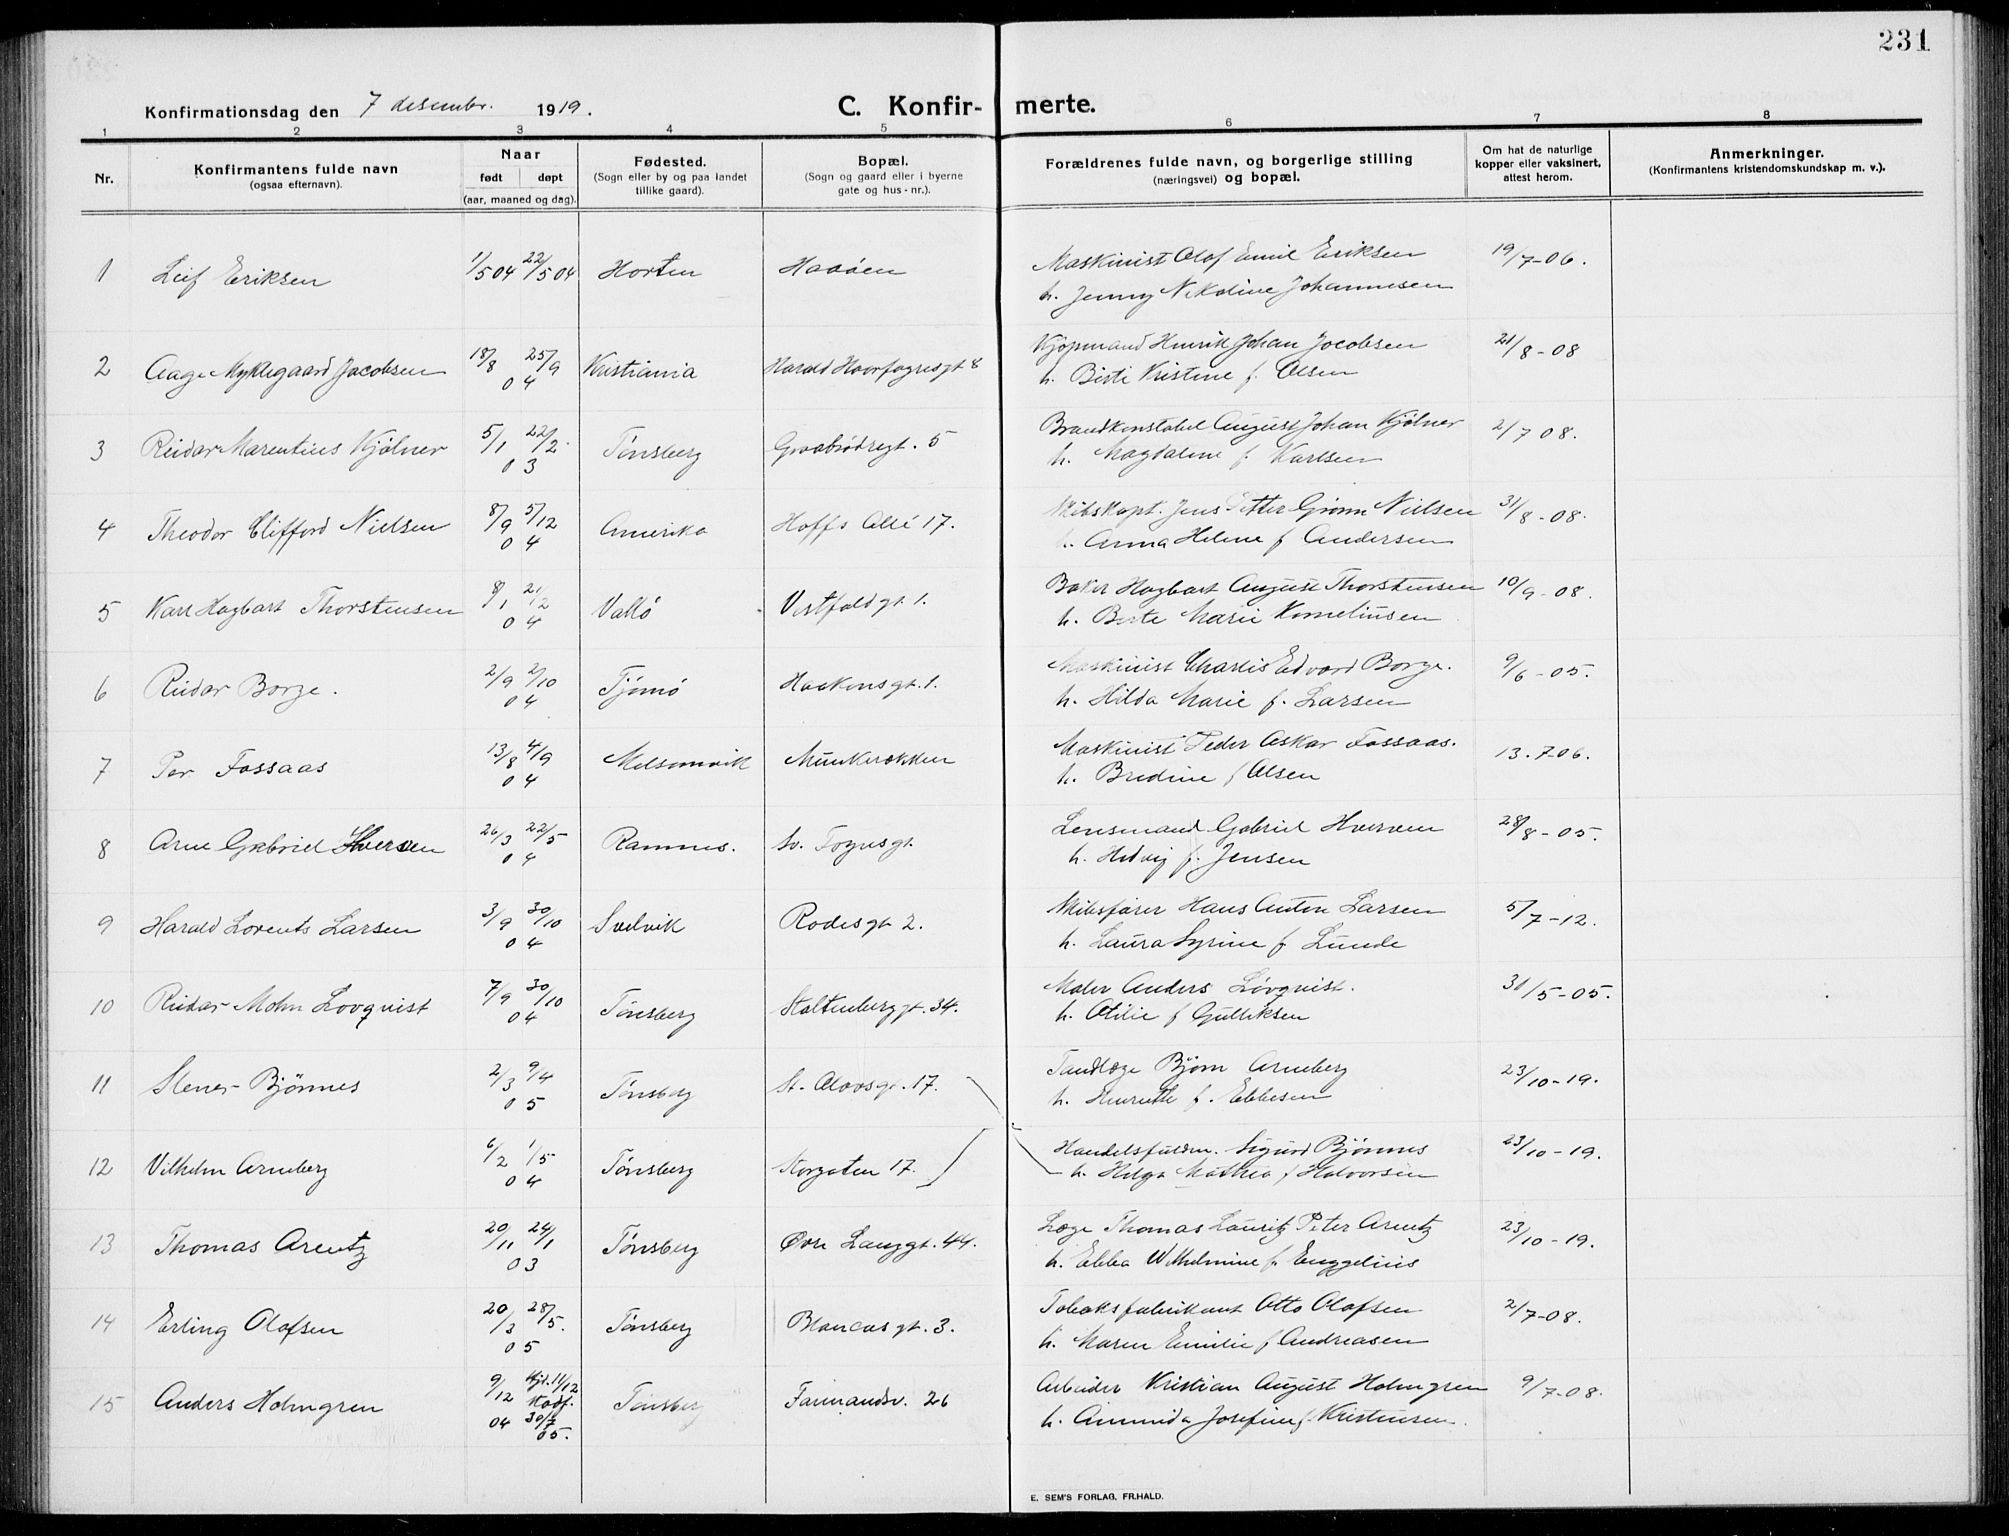 231
Konfirmationsdag den 7 desembr. 1919.
C. Konfir- merte.
1 2 3 4 5 6 7 8
Nr.
Konfirmantens fulde navn
(ogsaa efternavn).
Naar
født døpt
(aar, maaned og dag).
Fødested.
(Sogn eller by og paa landet
tillike gaard).
Bopæl.
(Sogn og gaard eller i byerne
gate og hus-nr.).
Forældrenes fulde navn, og borgerlige stilling
(næringsvei) og bopæl.
Om hat de naturlige
kopper eller vaksinert,
attest herom.
Anmerkninger.
(Konfirmantens kristendomskundskap m. v.).
1 Leif Eriksen 1/5 04 22/5 04 Horten Haaøen Maskinist Olof Emil Eriksen 19/7-06.
h. Jenny Nikoline Johannesen
2 Aage Myklegaard Jacobsen 18/8 25/9 04 Kristiania Harald Haarfagresgt 8 Kjøpmand Henrik Johan Jacobsen 21/8-08
h. Birti Kristine f. Olsen
3 Reidar Marentius Kjølner 5/1 22/2. 03 Tønsberg Graabrødregt. 5 Brandkonstabel August Johan Kjølner 2/7 08.
h. Magdalene f. Karlsen
4 Theodor Clifford Nielsen 8/9 5/12 04 Amerika Hoffs Allé 17. Skibskapt. Jens Petter Grønn Nielsen 31/8-08.
h. Anna Helene f Andersen
5 Karl Hagbart Thorstensen 8/1 21/2 04 Vallø Vestfoldgt. 1. Baker Hagbart August Thorstensen 10/9-08.
h. Berte Marie Korneliusen
6 Reidar Borge. 2/9 2/10 04 Tjømø Haakonsgt. 1. Maskinist Charles Edvard Borge. 9/6-05.
h. Hilda Marie f. Larsen
7 Per Fossaas 13/8 4/9 04 Melsomvik Munkerækken Maskinist Peder Oskar Fossaas. 13.7-06.
h. Bredine f Olsen
8 Arne Gabriel Hverven 26/3 22/5 04 Ramnes. Sv. Foynsgt. Lensmand Gabriel Hverven 28/8-05.
h. Hedvig f. Jensen
9 Harald Lorents Larsen 3/9 30/10 04 Svelvik Rodesgt 2. Skibsfører Hans Anton Larsen 5/7-12.
h. Laura Syrine f Lunde
10 Reidar Mohn Lovqvist 7/9 30/10 04 Tønsberg Stoltenberggt. 34. Maler Anders Løvqvist. 31/5-05.
h. Otilie f Gulliksen
11 Stener Bjønnes 2/3 9/4 05 Tønsberg St. Olavsgt. 17. Tandlæge Bjørn Arneberg 23/10-19.
h. Henriette f. Ebbesen
12 Vilhelm Arneberg 6/2 1/5 04 Tønsberg Storgaten 17. Handelsfuldm. Sigurd Bjønnes 23/10-19.
h. Helga Mathea f Halvorsen
13 Thomas Arentz 20/11 24/1 03 Tønsberg Øvre Langgt. 44. Læge Thomas Lauritz Peter Arentz 23/10-19.
h. Ebba Wilhelmine f. Enggelius
14 Erling Olafsen 20/3 28/5. 05 Tønsberg Blancasgt. 3. Tobaksfabrikant Otto Olafsen 2/7-08.
h. Maren Emilie f Andreasen
15 Anders Holmgren 9/12 04 Hjd. 11/12 stadf. 30/7 05. Tønsberg Farmandsv. 26 Arbeider Kristian August Holmgren 9/7-08.
h. Ammida Josefine f. Kristensen.
E. SEM'S FORLAG, FR.HALD.